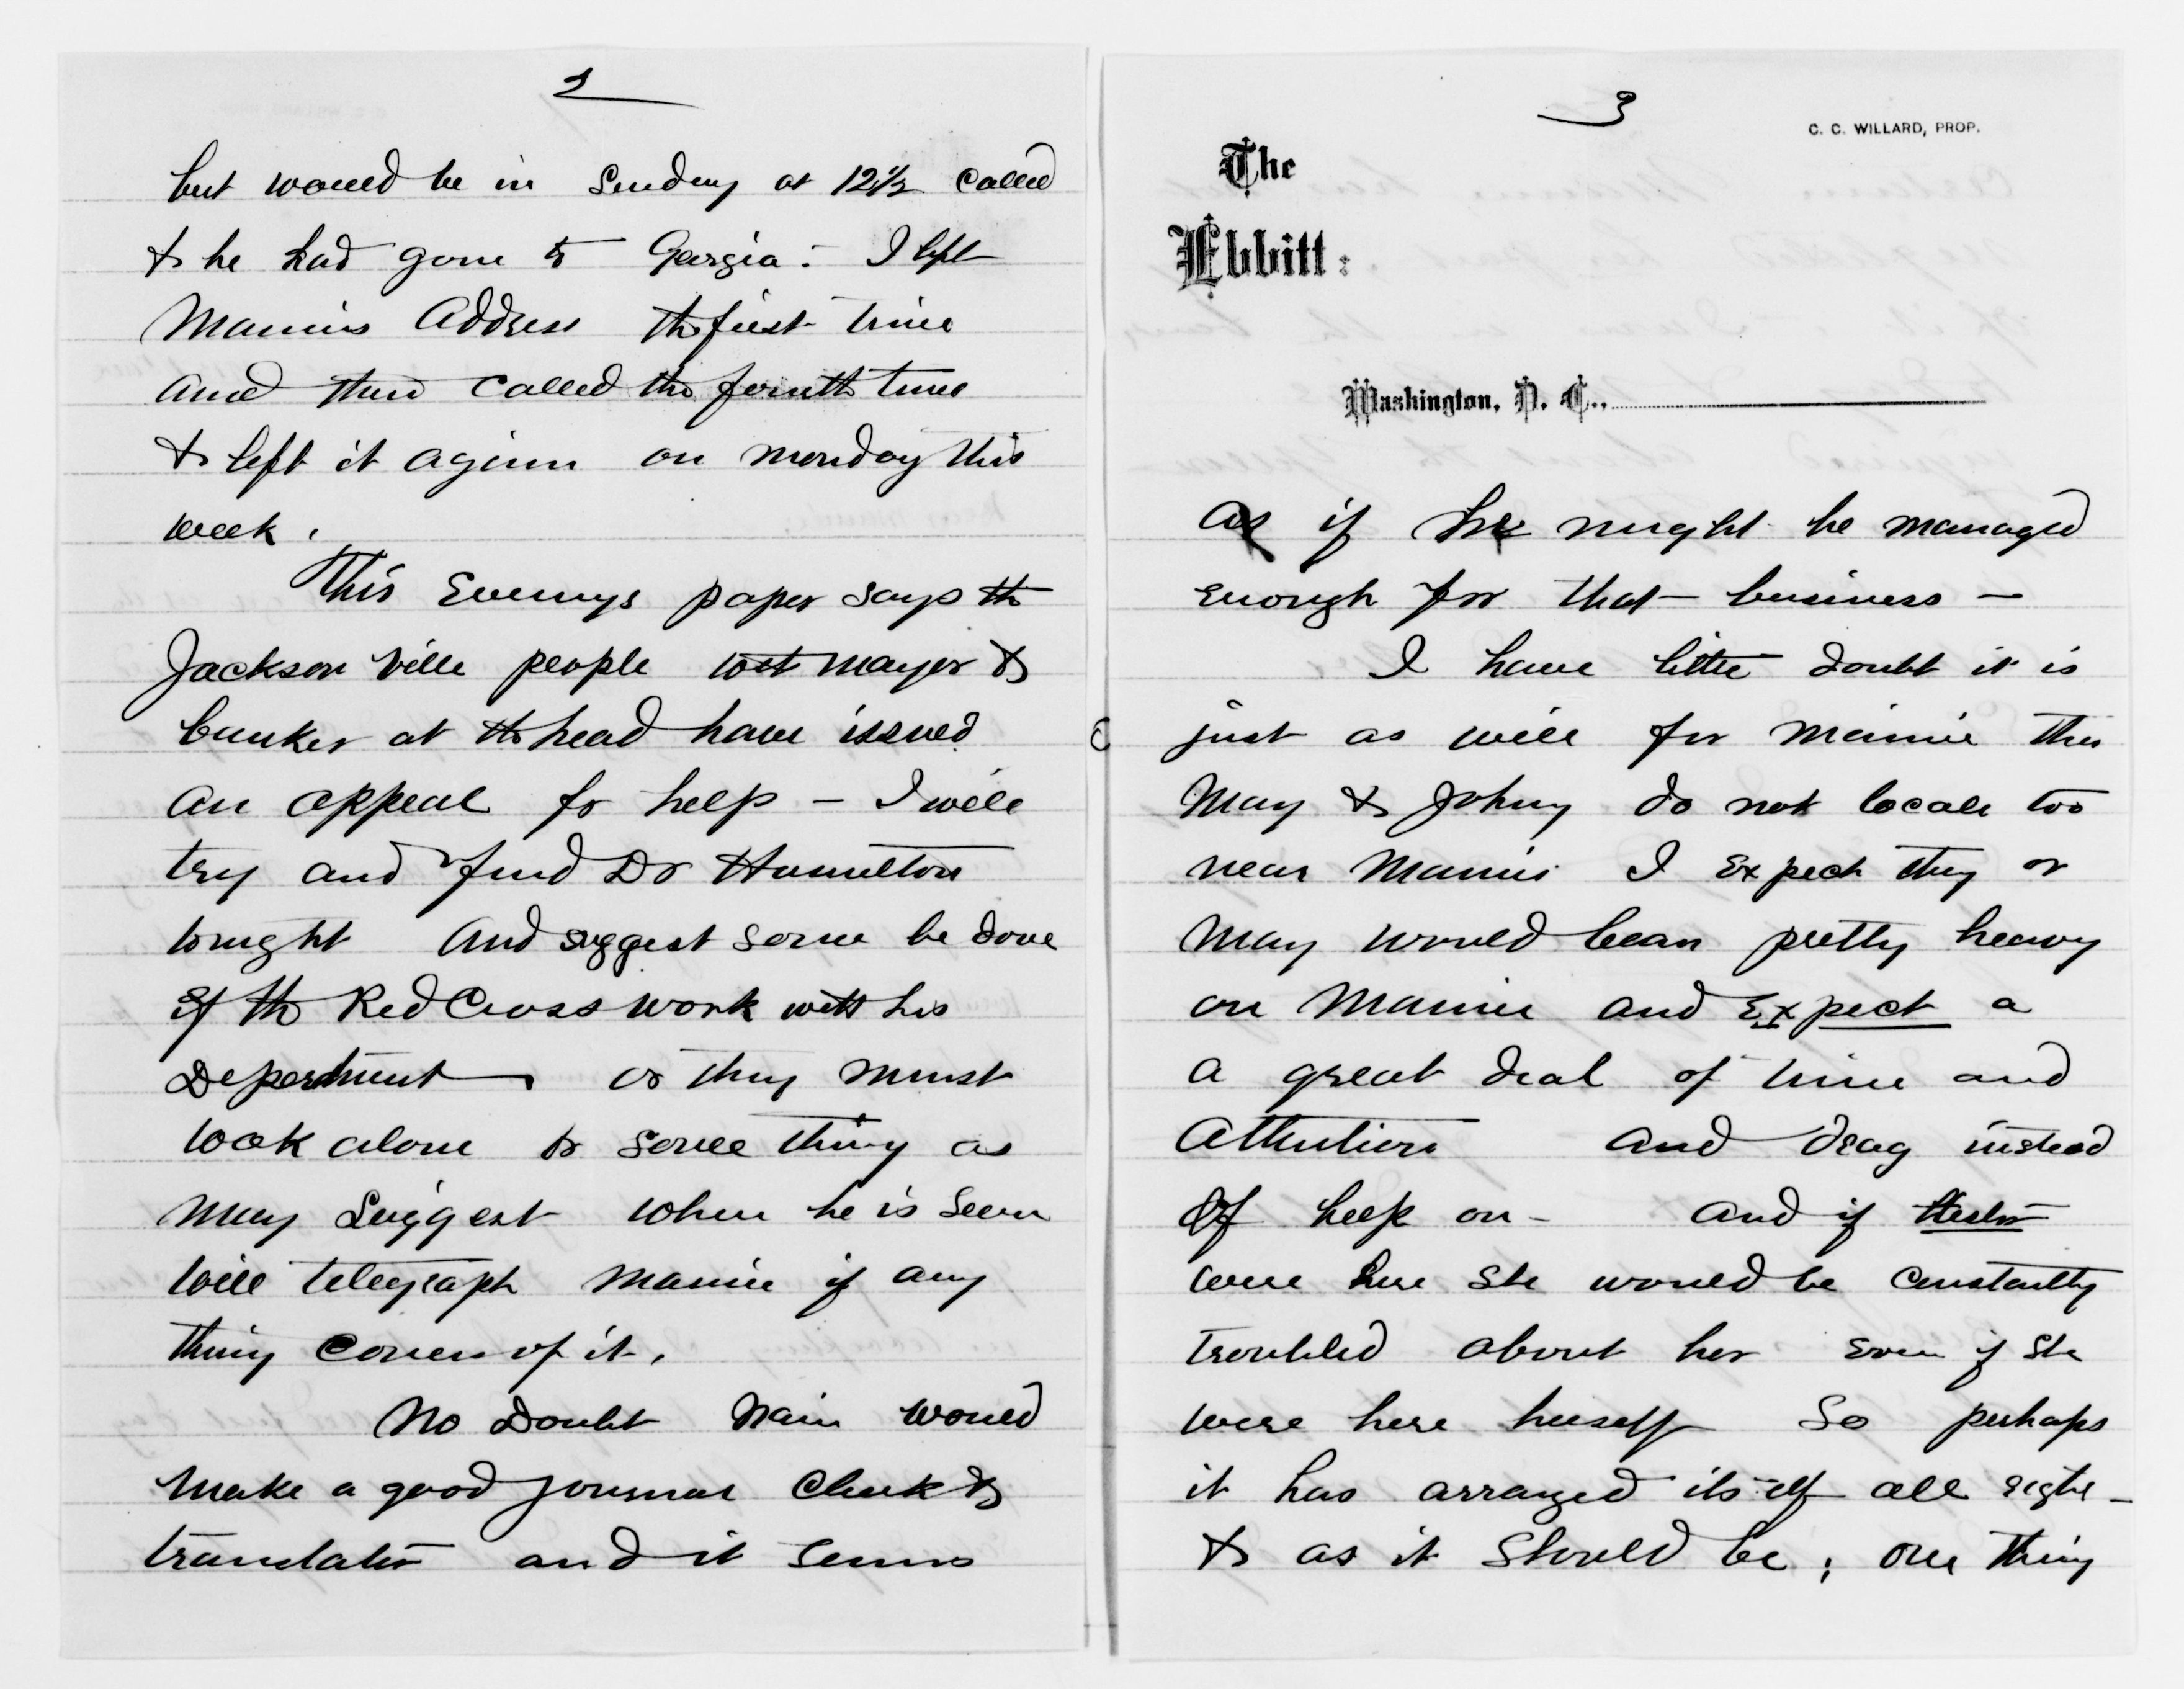 2
but would be in Sunday at 12½ called
& he had gone to Georgia. I left
Mamies Address the first time
and then called the fourth time
& left it again on monday this
week.
This Evenings paper says the
Jacksonville people with mayor &
banker at the head have issued
an appeal for help – I will
try and find Dr Hamilton
tonight And suggest some be done
of the Red Cross work with his
Department or they must
work alone or some thing as
may suggest when he is seen
will telegraph Mamie if any
thing comes of it.
No Doubt would
make a good journal Clerk &
translator and it seems
3
C. C. WILLARD, PROP.
The
Ebbitt:
Washington, D. C.,
as if he might be managed
enough for that – business –
I have little doubt it is
just as well for Mamie that
May & Johny do not locate too
near Mamie I Expect they or
May would lean pretty heavy
on Mamie and Expect a
a great deal of time and
Attention and drag instead
Of help on – and if Hester
were here she would be constantly
troubled about her even if she
were here herself So perhaps
it has arranged itself all right –
& as it should be; one thing